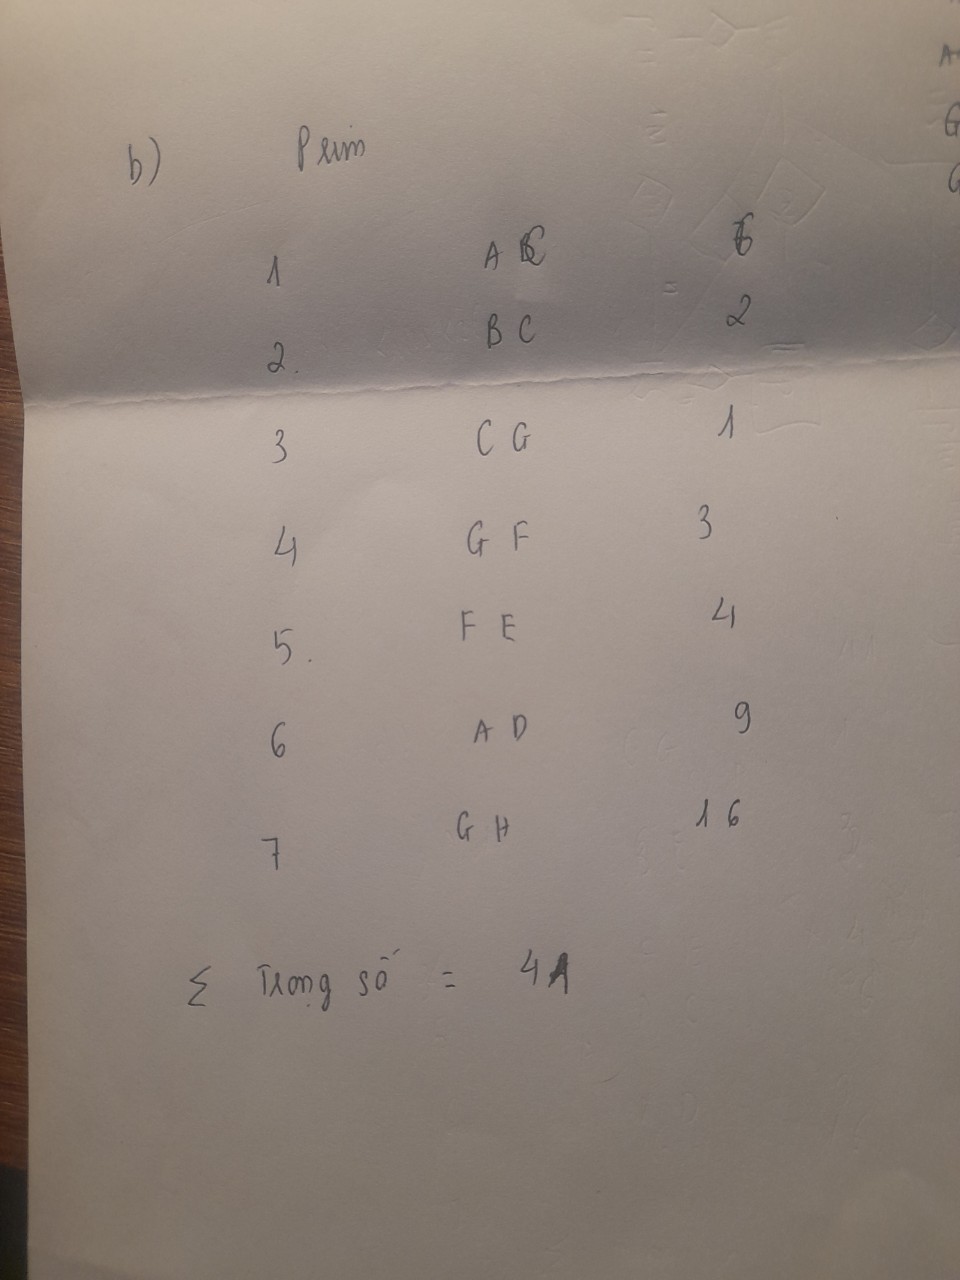 b) Prim
1 A C 6
2. B C 2
3 C G 1
4 G F 3
5. F E 4
6 A D 9
7 G H 16
Σ Trọng số = 41
A
G